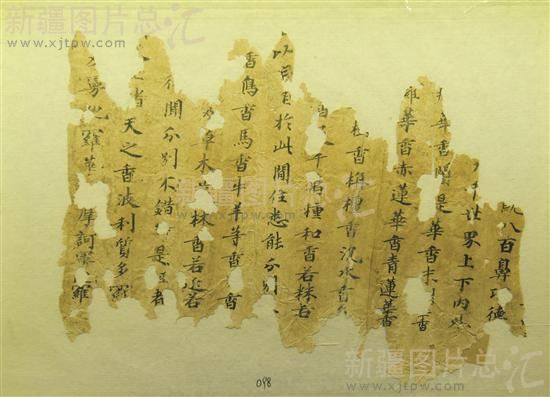 新疆图片总汇
www.xjtpw.com
八百鼻功德
世界上下內
華香 是華香末 香
羅華香赤蓮華香青蓮華香
香栴檀香沉水香
千萬種和香若抹若
於此間住悉能分別
香馬香牛羊等香 香
草木 林香若近若
聞分別不錯 是 者
香 天之香波利質多羅
陀羅華 摩訶曼 羅
098
新疆图片总汇
www.xjtpw.com